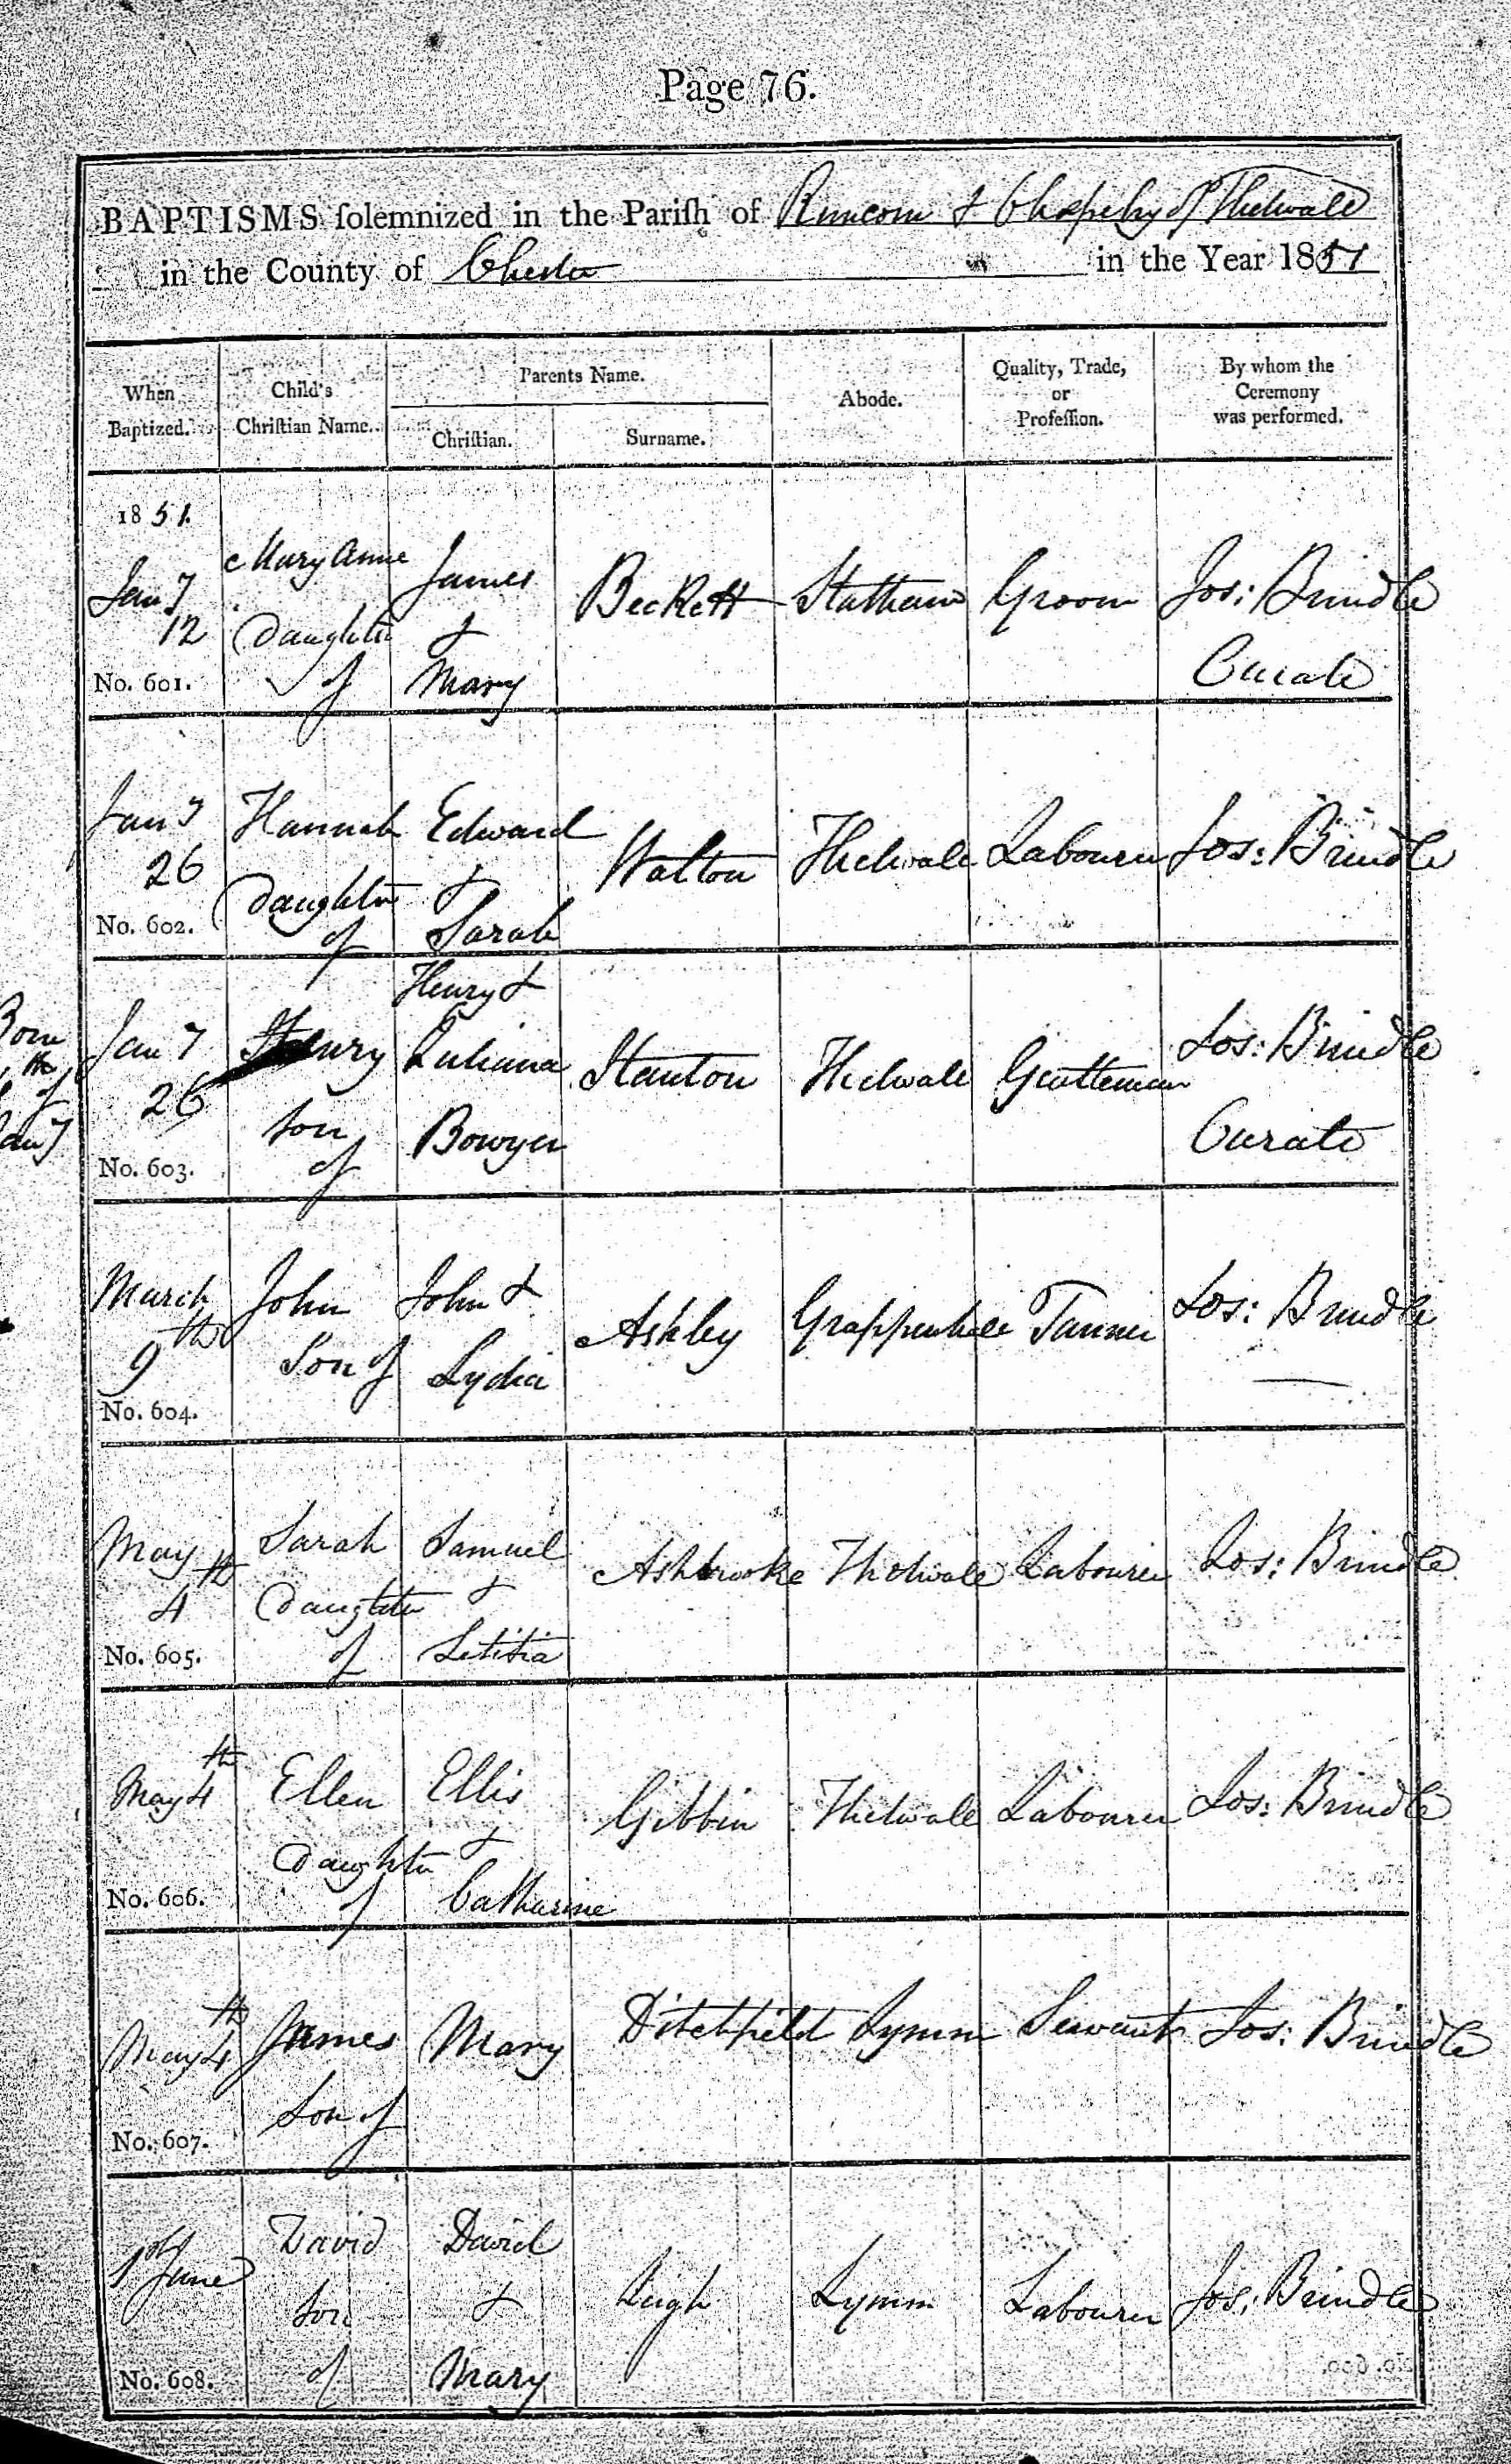 Page 76.
BAPTISMS ſolemnized in the Pariſh of Runcorn & Chapelry of Thelwall
in the County of Chester in the Year 1851
When Baptized.
Child's Chriſtian Name.
Parents Name.
Chriſtian.
Surname.
Abode.
Quality, Trade, or Profeſſion.
By whom the Ceremony was performed.
1851.
Jany 12
No. 601.
Mary Anne Daughter of
James & Mary
Beckett
Statham
Groom
Jos: Brindle Curate
Jany 26
No. 602.
Hannah Daughter of
Edward & Sarah
Walton
Thelwall
Labourer
Jos: Brindle
Born
th
of
Jany
Jany 26
No. 603.
Henry son of
Henry & Juliana Bowyer
Stanton
Thelwall
Gentleman
Jos: Brindle Curate
March 9th
No. 604.
John Son of
John & Lydia
Ashley
Grappenhall
Tanner
Jos: Brindle
May 4th
No. 605.
Sarah Daughter of
Samuel & Letitia
Ashbrooke
Thelwall
Labourer
Jos: Brindle
May 4th
No. 606.
Ellen Daughter of
Ellis & Catharine
Gibbin
Thelwall
Labourer
Jos: Brindle
May 4th
No. 607.
James Son of
Mary
Ditchfield
Lymm
Servant
Jos: Brindle
1st June
No. 608.
David son of
David & Mary
Leigh
Lymm
Labourer
Jos: Brindle